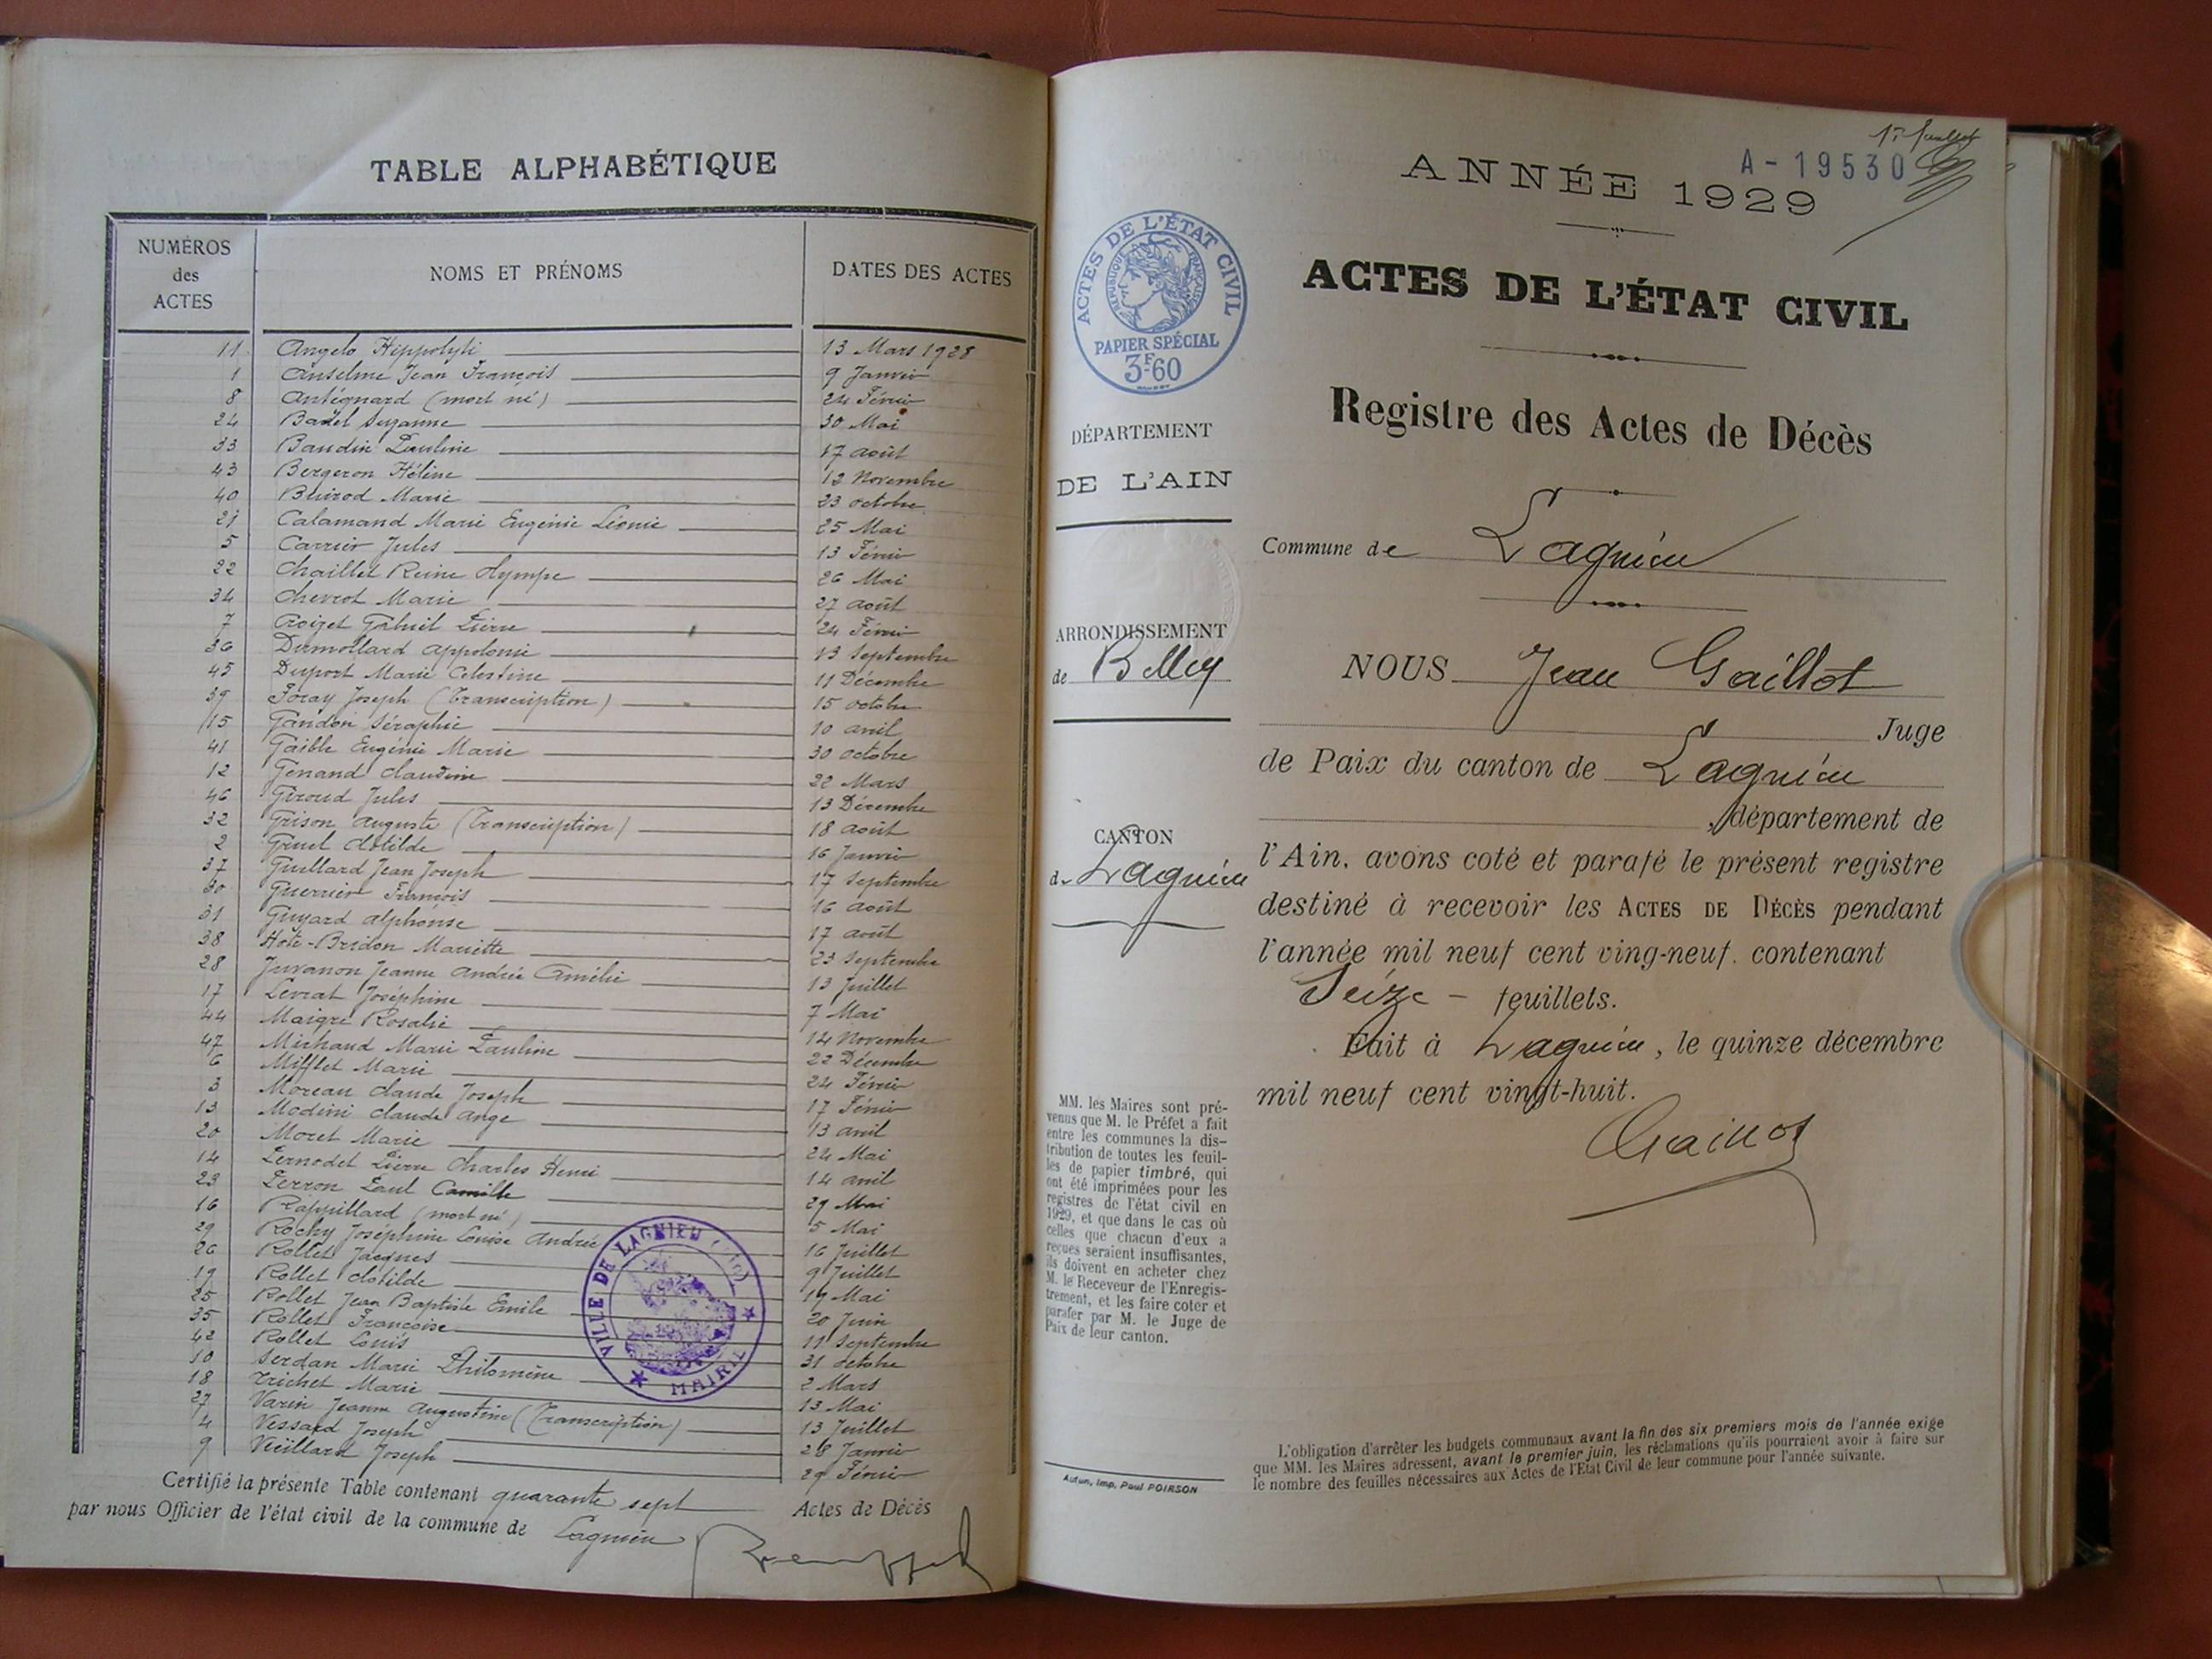 TABLE ALPHABÉTIQUE
NUMÉROS des ACTES NOMS ET PRÉNOMS DATES DES ACTES
11 Angelo Hippolyte 13 Mars 1928
1 Anselme Jean François 9 Janvier
8 Antégnard (mort né) 24 Février
24 Badel Suzanne 30 Mai
33 Baudin Pauline 17 août
43 Bergeron Hélène 12 Novembre
40 Marie 23 octobre
21 Calamand Marie Eugénie Léonie 25 Mai
5 Carrier Jules 13 Février
22 Chaillet Reine Olympe 26 Mai
34 Chevrot Marie 27 août
7 Croizet Gabriel Pierre 24 Février
36 Dumollard Appolonie 13 Septembre
45 Duport Marie Célestine 11 Décembre
39 Foray Joseph (Transcription) 15 octobre
15 Gandon Séraphie 10 avril
41 Gaible Eugénie Marie 30 octobre
12 Génand Claudine 22 Mars
46 Giroud Jules 13 Décembre
32 Grison Auguste (Transcription) 18 août
2 Gruel Clotilde 16 Janvier
37 Guillard Jean Joseph 17 Septembre
30 Guerrier François 16 août
31 Guyard Alphonse 17 août
38 Hote-Bridon Mariette 23 Septembre
28 Juvanon Jeanne Andrée Amélie 13 Juillet
17 Levrat Joséphine 7 Mai
44 Maigre Rosalie 14 Novembre
47 Michaud Marie Pauline 22 Décembre
6 Mifflet Marie 24 Février
3 Moreau Claude Joseph 17 Février
13 Modini Claude Ange 13 avril
20 Moret Marie 24 Mai
14 Pernodet Pierre Charles Henri 14 avril
23 Perron Paul Camille 29 Mai
16 Rappillard (mort né) 5 Mai
29 Rochy Joséphine Louise Andrée 16 Juillet
26 Rollet Jacques 9 Juillet
19 Rollet Clotilde 19 Mai
25 Rollet Jean Baptiste Emile 20 Juin
35 Rollet Françoise 11 Septembre
42 Rollet Louis 31 octobre
10 Serdan Marie Philomène 2 Mars
18 Trichet Marie 13 Mai
27 Varin Jeanne Augustine (Transcription) 13 Juillet
4 Vessard Joseph 28 Janvier
9 Vieillard Joseph 29 Février
VILLE DE LAGNIEU
MAIRIE
Certifié la présente Table contenant quarante sept Actes de Décès
par nous Officier de l'état civil de la commune de Lagnieu
1er feuillet
A-19530
ANNÉE 1929
ACTES DE L'ÉTAT CIVIL
RÉPUBLIQUE FRANÇAISE
PAPIER SPÉCIAL
3F60
ACTES DE L'ÉTAT CIVIL
Registre des Actes de Décès
DÉPARTEMENT
DE L'AIN
Commune de Lagnieu
ARRONDISSEMENT
de Belley
NOUS Jean Gaillot
Juge
de Paix du canton de Lagnieu
, département de
CANTON
de Lagnieu
l'Ain, avons coté et parafé le présent registre
destiné à recevoir les ACTES DE DÉCÈS pendant
l'année mil neuf cent ving-neuf. contenant
Seize - feuillets.
Fait à Lagnieu, le quinze décembre
mil neuf cent vingt-huit.
Gaillot
MM. les Maires sont pré-
venus que M. le Préfet a fait
entre les communes la dis-
tribution de toutes les feuil-
les de papier timbré, qui
ont été imprimées pour les
registres de l'état civil en
1929, et que dans le cas où
celles que chacun d'eux a
reçues seraient insuffisantes,
ils doivent en acheter chez
M. le Receveur de l'Enregis-
trement, et les faire coter et
parafer par M. le Juge de
Paix de leur canton.
Autun, Imp. Paul POIRSON
L'obligation d'arrêter les budgets communaux avant la fin des six premiers mois de l'année exige
que MM. les Maires adressent, avant le premier juin, les réclamations qu'ils pourraient avoir à faire sur
le nombre des feuilles nécessaires aux Actes de l'Etat Civil de leur commune pour l'année suivante.